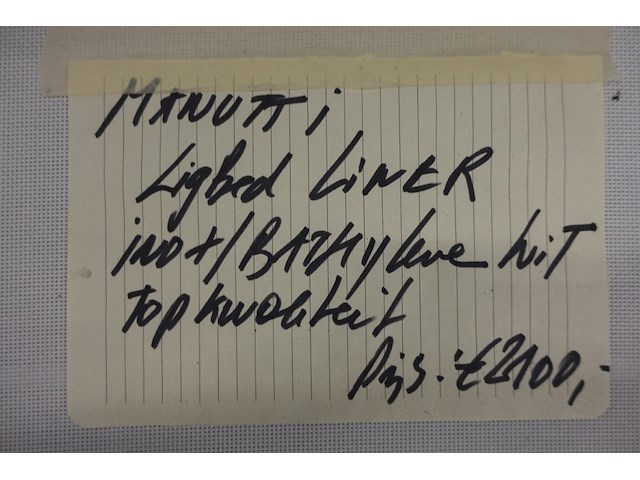 MANUTTi
Ligbed LiNER
inox/BATHYLene wiT
Topkwaliteit
Prijs: €2100,-